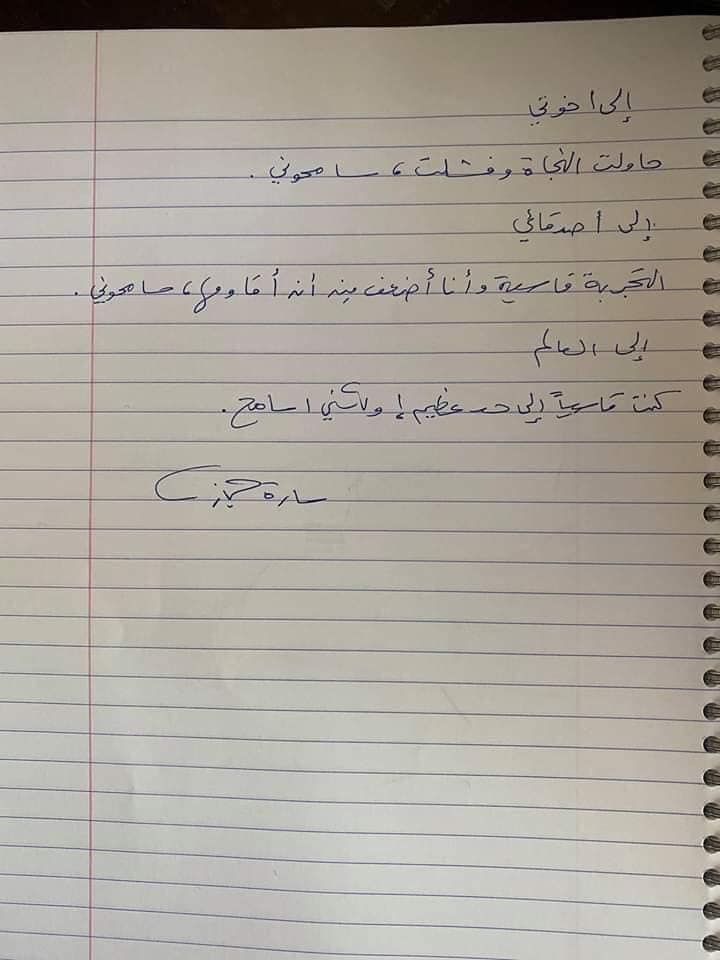 إلى اخوتي
حاولت النجاة وفشلت، سامحوني.
إلى أصدقائي
التجربة قاسية وأنا أضعف من أن أقاومها، سامحوني.
إلى العالم
كنت قاسياً إلى حد عظيم! ولكني اسامح.
سارة حجازي